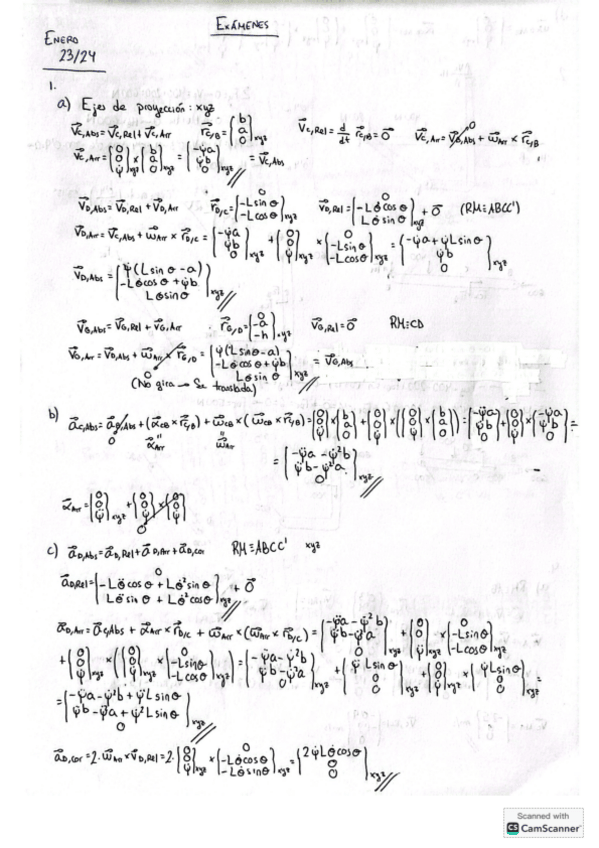 EXÁMENES
ENERO
23/24
1.
a) Ejes de proyección: xyz
v⃗C,Abs = v⃗C,Rel + v⃗C,Arr   r⃗C/B = {b a 0}xyz   v⃗C,Rel = d/dt r⃗C/B = 0⃗   v⃗C,Arr = v⃗B,Abs + ω⃗Arr × r⃗C/B
v⃗C,Arr = {0 0 ψ̇}xyz × {b a 0}xyz = {-ψ̇a ψ̇b 0}xyz = v⃗C,Abs
v⃗D,Abs = v⃗D,Rel + v⃗D,Arr   r⃗D/C = {0 -Lsinθ -Lcosθ}xyz   v⃗D,Rel = {0 -Lθ̇cosθ Lθ̇sinθ}xyz + 0⃗   (RM≡ABCC')
v⃗D,Arr = v⃗C,Abs + ω⃗Arr × r⃗D/C = {-ψ̇a ψ̇b 0}xyz + {0 0 ψ̇}xyz × {0 -Lsinθ -Lcosθ}xyz = {-ψ̇a+ψ̇Lsinθ ψ̇b 0}xyz
v⃗D,Abs = {ψ̇(Lsinθ-a) -Lθ̇cosθ+ψ̇b Lθ̇sinθ}xyz
v⃗G,Abs = v⃗G,Rel + v⃗G,Arr   r⃗G/D = {0 -a -h}xyz   v⃗G,Rel = 0⃗   RM≡CD
v⃗G,Arr = v⃗D,Abs + ω⃗Arr × r⃗G/D = {ψ̇(Lsinθ-a) -Lθ̇cosθ+ψ̇b Lθ̇sinθ}xyz = v⃗G,Abs
0
(No gira → Se translada)
b) a⃗C,Abs = a⃗B,Abs + (α⃗CB × r⃗C/B) + ω⃗CB × (ω⃗CB × r⃗C/B) = {0 0 ψ̈} × {b a 0} + {0 0 ψ̇} × ({0 0 ψ̇} × {b a 0}) = {-ψ̈a ψ̈b 0} + {0 0 ψ̇} × {-ψ̇a ψ̇b 0} =
0   α⃗Arr   ω⃗Arr
= {-ψ̈a - ψ̇²b ψ̈b - ψ̇²a 0}xyz
α⃗Arr = {0 0 ψ̈}xyz + {0 0 ψ̇} × {0 0 ψ̇}
c) a⃗D,Abs = a⃗D,Rel + a⃗D,Arr + a⃗D,cor   RM≡ABCC'   xyz
a⃗D,Rel = {0 -Lθ̈cosθ + Lθ̇²sinθ Lθ̈sinθ + Lθ̇²cosθ}xyz + 0⃗
a⃗D,Arr = a⃗C,Abs + α⃗Arr × r⃗D/C + ω⃗Arr × (ω⃗Arr × r⃗D/C) = {-ψ̈a - ψ̇²b ψ̈b - ψ̇²a 0}xyz + {0 0 ψ̈}xyz × {0 -Lsinθ -Lcosθ}
+ {0 0 ψ̇}xyz × ({0 0 ψ̇}xyz × {0 -Lsinθ -Lcosθ}xyz) = {-ψ̈a - ψ̇²b ψ̈b - ψ̇²a 0}xyz + {ψ̈Lsinθ 0 0}xyz + {0 0 ψ̇}xyz × {ψ̇Lsinθ 0 0}xyz =
= {-ψ̈a - ψ̇²b + ψ̈Lsinθ ψ̈b - ψ̇²a + ψ̇²Lsinθ 0}xyz
a⃗D,cor = 2·ω⃗Arr × v⃗D,Rel = 2·{0 0 ψ̇}xyz × {0 -Lθ̇cosθ -Lθ̇sinθ}xyz = {2ψ̇Lθ̇cosθ 0 0}xyz
Scanned with
CS CamScanner